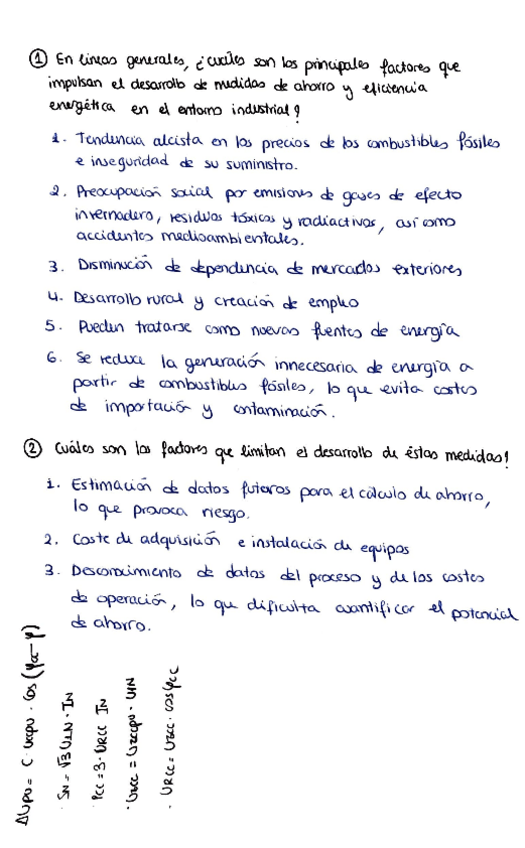 ① En líneas generales, ¿cuáles son los principales factores que
impulsan el desarrollo de medidas de ahorro y eficiencia
energética en el entorno industrial?
1. Tendencia alcista en los precios de los combustibles fósiles
e inseguridad de su suministro.
2. Preocupación social por emisiones de gases de efecto
invernadero, residuos tóxicos y radiactivos, así como
accidentes medioambientales.
3. Disminución de dependencia de mercados exteriores
4. Desarrollo rural y creación de empleo
5. Pueden tratarse como nuevas fuentes de energía
6. Se reduce la generación innecesaria de energía a
partir de combustibles fósiles, lo que evita costes
de importación y contaminación.
② Cuáles son los factores que limitan el desarrollo de éstas medidas?
1. Estimación de datos futuros para el cálculo de ahorro,
lo que provoca riesgo.
2. Coste de adquisición e instalación de equipos
3. Desconocimiento de datos del proceso y de los costes
de operación, lo que dificulta cuantificar el potencial
de ahorro.
ΔUpu = C · Uccpu · cos(φcc - φ)
· SN = √3 U1N · IN
Pcc = 3 · URCC IN
· Uzcc = Uzccpu · U1N
· URCC = Uzcc · cosφcc